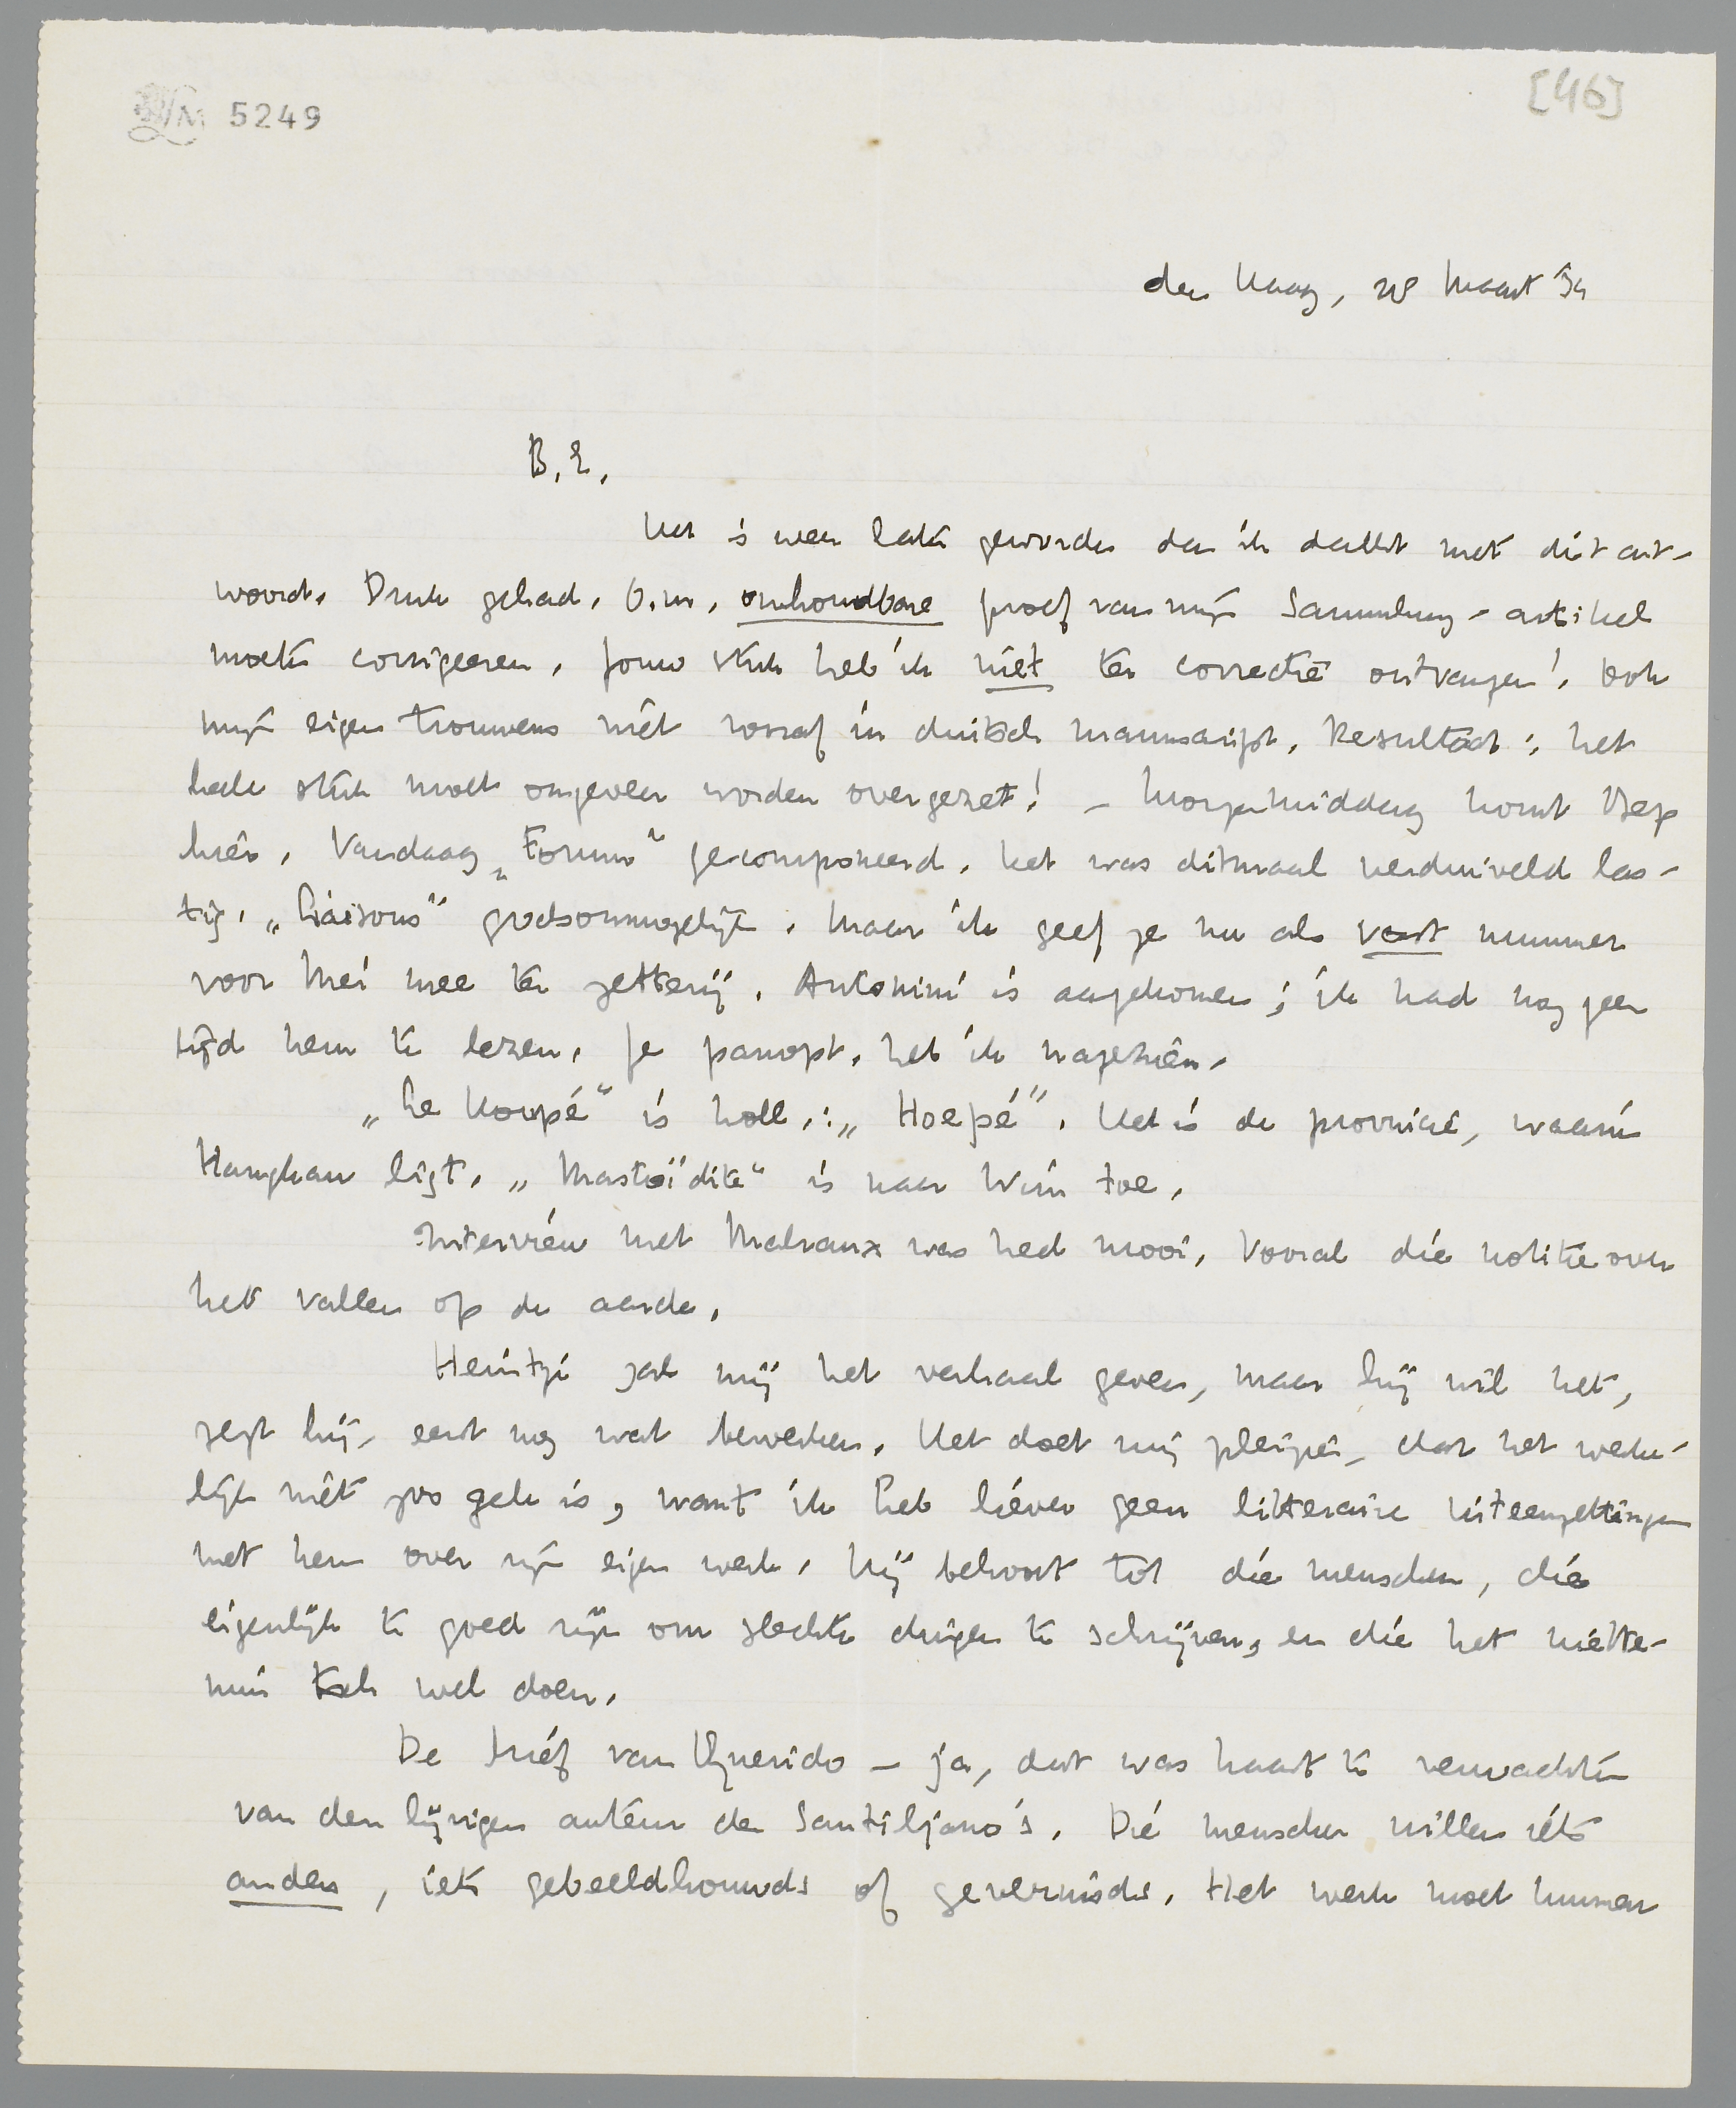 LM 5249
[46]
den Haag, 28 Maart '34
B.E.,
Het is weer later geworden dan ik dacht met dit ant-
woord. Druk gehad, o.m. onhoudbare proef van mijn Sammlung-artikel
moeten corrigeeren. Jouw stuk heb ik niet ter correctie ontvangen! Ook
mijn eigen trouwens niet vooraf in duitsch manuscript. Resultaat: het
heele stuk moet ongeveer worden overgezet! – Morgenmiddag komt Bep
hier. Vandaag „Forum" gecomponeerd. Het was ditmaal verduiveld las-
tig. „Liaisons" godsonmogelijk. Maar ik geef je nu als vast nummer
voor Mei mee ter zetterij. Antonini is aangekomen; ik had nog geen
tijd hem te lezen. Je panopt. heb ik nagezien.
„Le Houpé" is holl.: „Hoepé". Het is de provincie, waarin
Hankau ligt. „Mastoïdite" is naar Wim toe.
Interview met Malraux was heel mooi. Vooral die notitie over
het vallen op de aarde.
Heintje zal mij het verhaal geven, maar hij wil het,
zegt hij, eerst nog wat bewerken. Het doet mij plezier, dat het werke-
lijk niet zoo gek is, want ik heb liever geen litteraire uiteenzettingen
met hem over zijn eigen werk. Hij behoort tot die menschen, die
eigenlijk te goed zijn om slechte dingen te schrijven, en die het niette-
min toch wel doen.
De brief van Querido – ja, dat was haast te verwachten
van den lijvigen auteur der Santiljano's. Die menschen willen iets
anders, iets gebeeldhouwds of gevernisds. Het werk moet kunnen